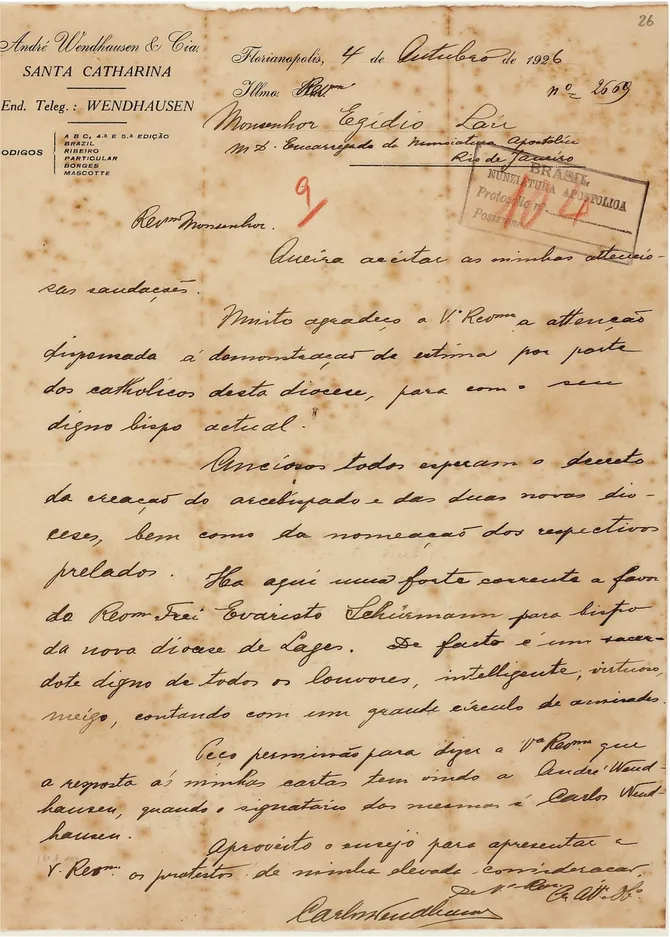 26
André Wendhausen & Cia.
SANTA CATHARINA
End. Teleg.: WENDHAUSEN
ODIGOS
A B C, 4.ª E 5.ª EDIÇÃO
BRAZIL
RIBEIRO
PARTICULAR
BORGES
MASCOTTE
Florianopolis, 4 de Outubro de 1926
Illmo. Revmo
nº= 2669
Monsenhor Egidio Lari
M. D. Encarregado da Nunciatura Apostolica
Rio de Janeiro
BRASIL
NUNCIATURA APOSTOLICA
Protocollo nº
Posizione
9
Revmo Monsenhor.
Queira aceitar as minhas attencio-
sas saudações.
Muito agradeço a V.ª Revma a attenção
dispensada á demonstração de estima por parte
dos catholicos desta diocese, para com o seu
digno bispo actual.
Anciosos todos esperam o decreto
da creação do arcebispado e das duas novas dio-
ceses, bem como da nomeação dos respectivos
prelados. Ha aqui uma forte corrente a favor
do Revmo Frei Evaristo Schürmann para bispo
da nova diocese de Lages. De facto é um sacer-
dote digno de todos os louvores, intelligente, virtuoso,
meigo, contando com um grande circulo de amizades.
Peço permissão para dizer a Vª Revma que
a resposta ás minhas cartas tem vindo a André Wend-
hausen, quando o signatario das mesmas é Carlos Wend-
hausen.
Aproveito o ensejo para apresentar a
V. Revma os protestos de minha elevada consideração,
De Vª Rev Cr. Att. Ob.
Carlos Wendhausen